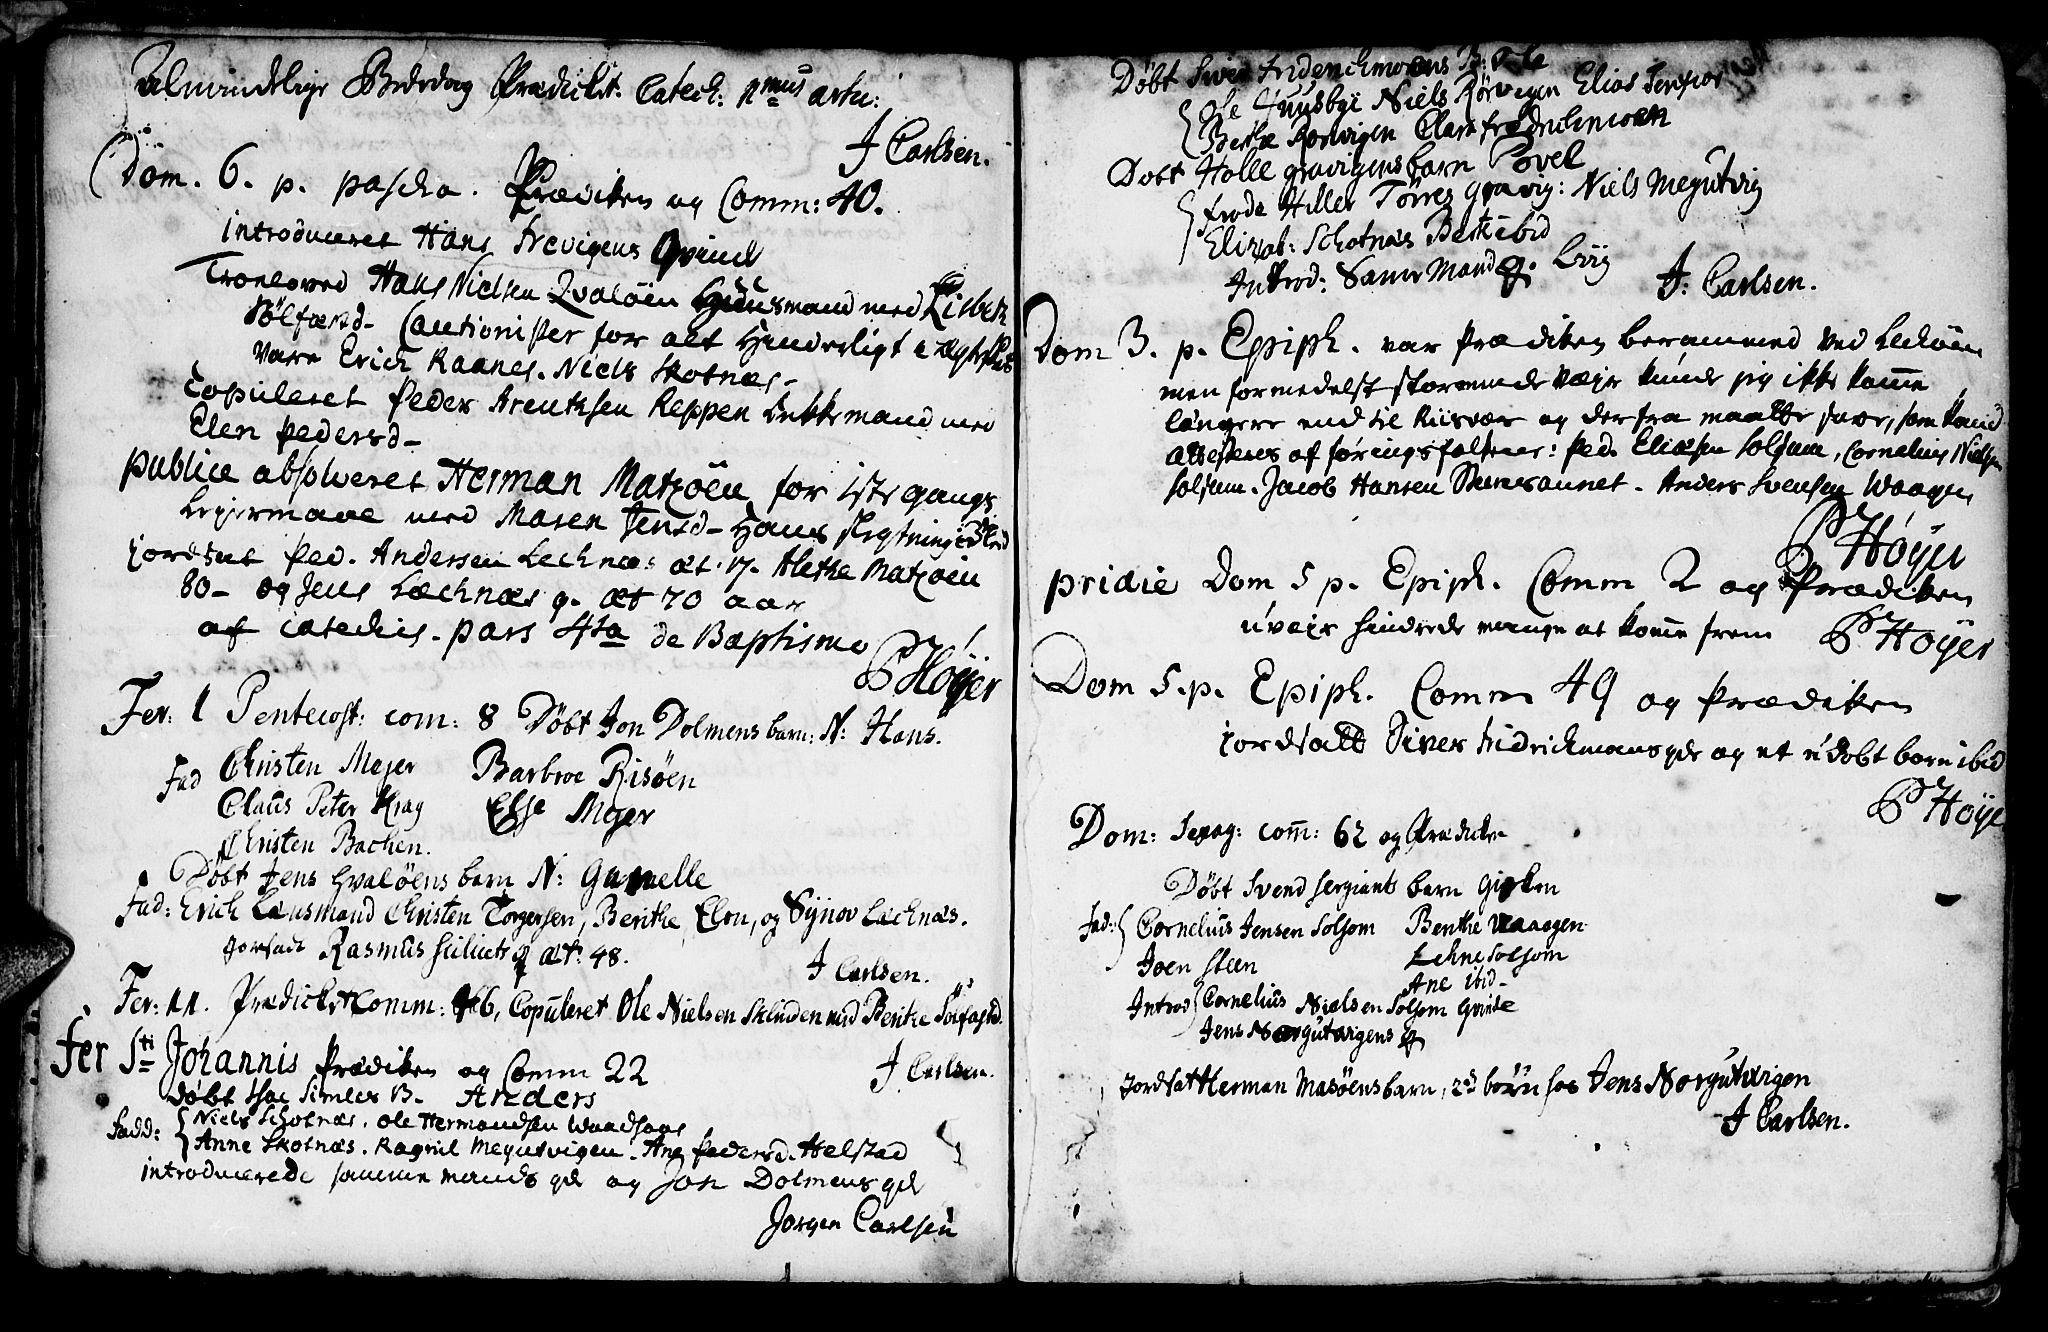 Almindelige Bededag Prædicket. Catech: 1mus artic:
J Carlsen.
Dom. 6. p. pascha. Prædiken og Comm: 40.
introduceret Hans Trevigens Qvinde
Troloved Hans Nielsen Qvaløen Huusmand med Lisbeth
Cautionister for alt Hinderligt ægteskab
vare Erich Raanes. Niels Skotnæs.
Copuleret Peder Arentsen Reppen Enkkemand med
Elen Pedersd-
publice absolveret Herman Matzøen for 1ste gangs
Leyermaal med Maren Jensd- Hans
jordsat Ped. Andersen Lecknæs æt. 17. Alethe Matzøen
80- og Jens Lecknæs q. æt 70 aar
af catechis. pars 4ta de Baptismo
P Høyer
Fer: 1 Pentecost: com: 8 Døbt Jon Dolmens barn: N: Hans.
Fad Christen Mejer Barbroe Risøen
Claus Peter Krag Else Mejer
Christen Bachen.
Døbt Jens Hvaløens barn N: Gunelle
Fad: Erich Lensmand Christen Torgersen, Berithe, Elen, og Synov Lecknæs.
Jorsadt Rasmus q æt: 48.
J Carlsen.
Fer: 11. Prædicket Comm: 46, Copuleret Ole Nielsen med Berithe
Fer Sti Johannis Prædiken og Comm 22
J Carlsen.
Døbt B. Anders
Fadd: Niels Schotnæs, Ole Hermandsen
Anne Skotnæs. Ragnil Megutvigen. Ane Pedersd. Helstad
introducerede samme mands qd og Jon Dolmens qd
Jørgen Carlsen
Døbt Fridrichmoens B: Ole
Ole Huusbye Niels Rørvigen Elias
Berthe Rørvigen Clara Fredrichmoen
Døbt Halle Gravigens barn Povel
Frode Hiller Torres Gravig: Niels Megutvig
Elizab: Schotnæs Berit ibid
Introd: Samme Mand q.
J: Carlsen.
Dom 3. p. Epiph. var Prædiken berammed ved Leckøen
men formedelst stormende Væjr kunde jeg ikke komme
længere end til Riisvær og derfra maatte
attesteres af føringsfolkene: Ped. Eliæsen Solsem, Cornelius Nielsen
Solsem. Jacob Hansen Steensaunet. Anders Svensen Waagen
P Høyer
pridie Dom 5 p. Epiph. Comm 2 og Prædiken
uvejr hindrede mange at komme frem P Høyer
Dom 5. p. Epiph. Comm 49 og Prædiken
jordsatt Siver Fridrichmoens qd og et udøbt barn ibid
P Høye
Dom: Sexag: comm: 62 og Prædiken
Døbt Svend Sergiants barn
Fad: Cornelius Jensen Solsom Benthe Waaagen
Joen Steen Lehne Solsom
Ane ibid-
Introd Cornelius Nielsen Solsom Qvinde
Jens Norgutvigens q
Jordsat Herman Masøens barn, 2de børn hos Jens Norgutvigen
J Carlsen.